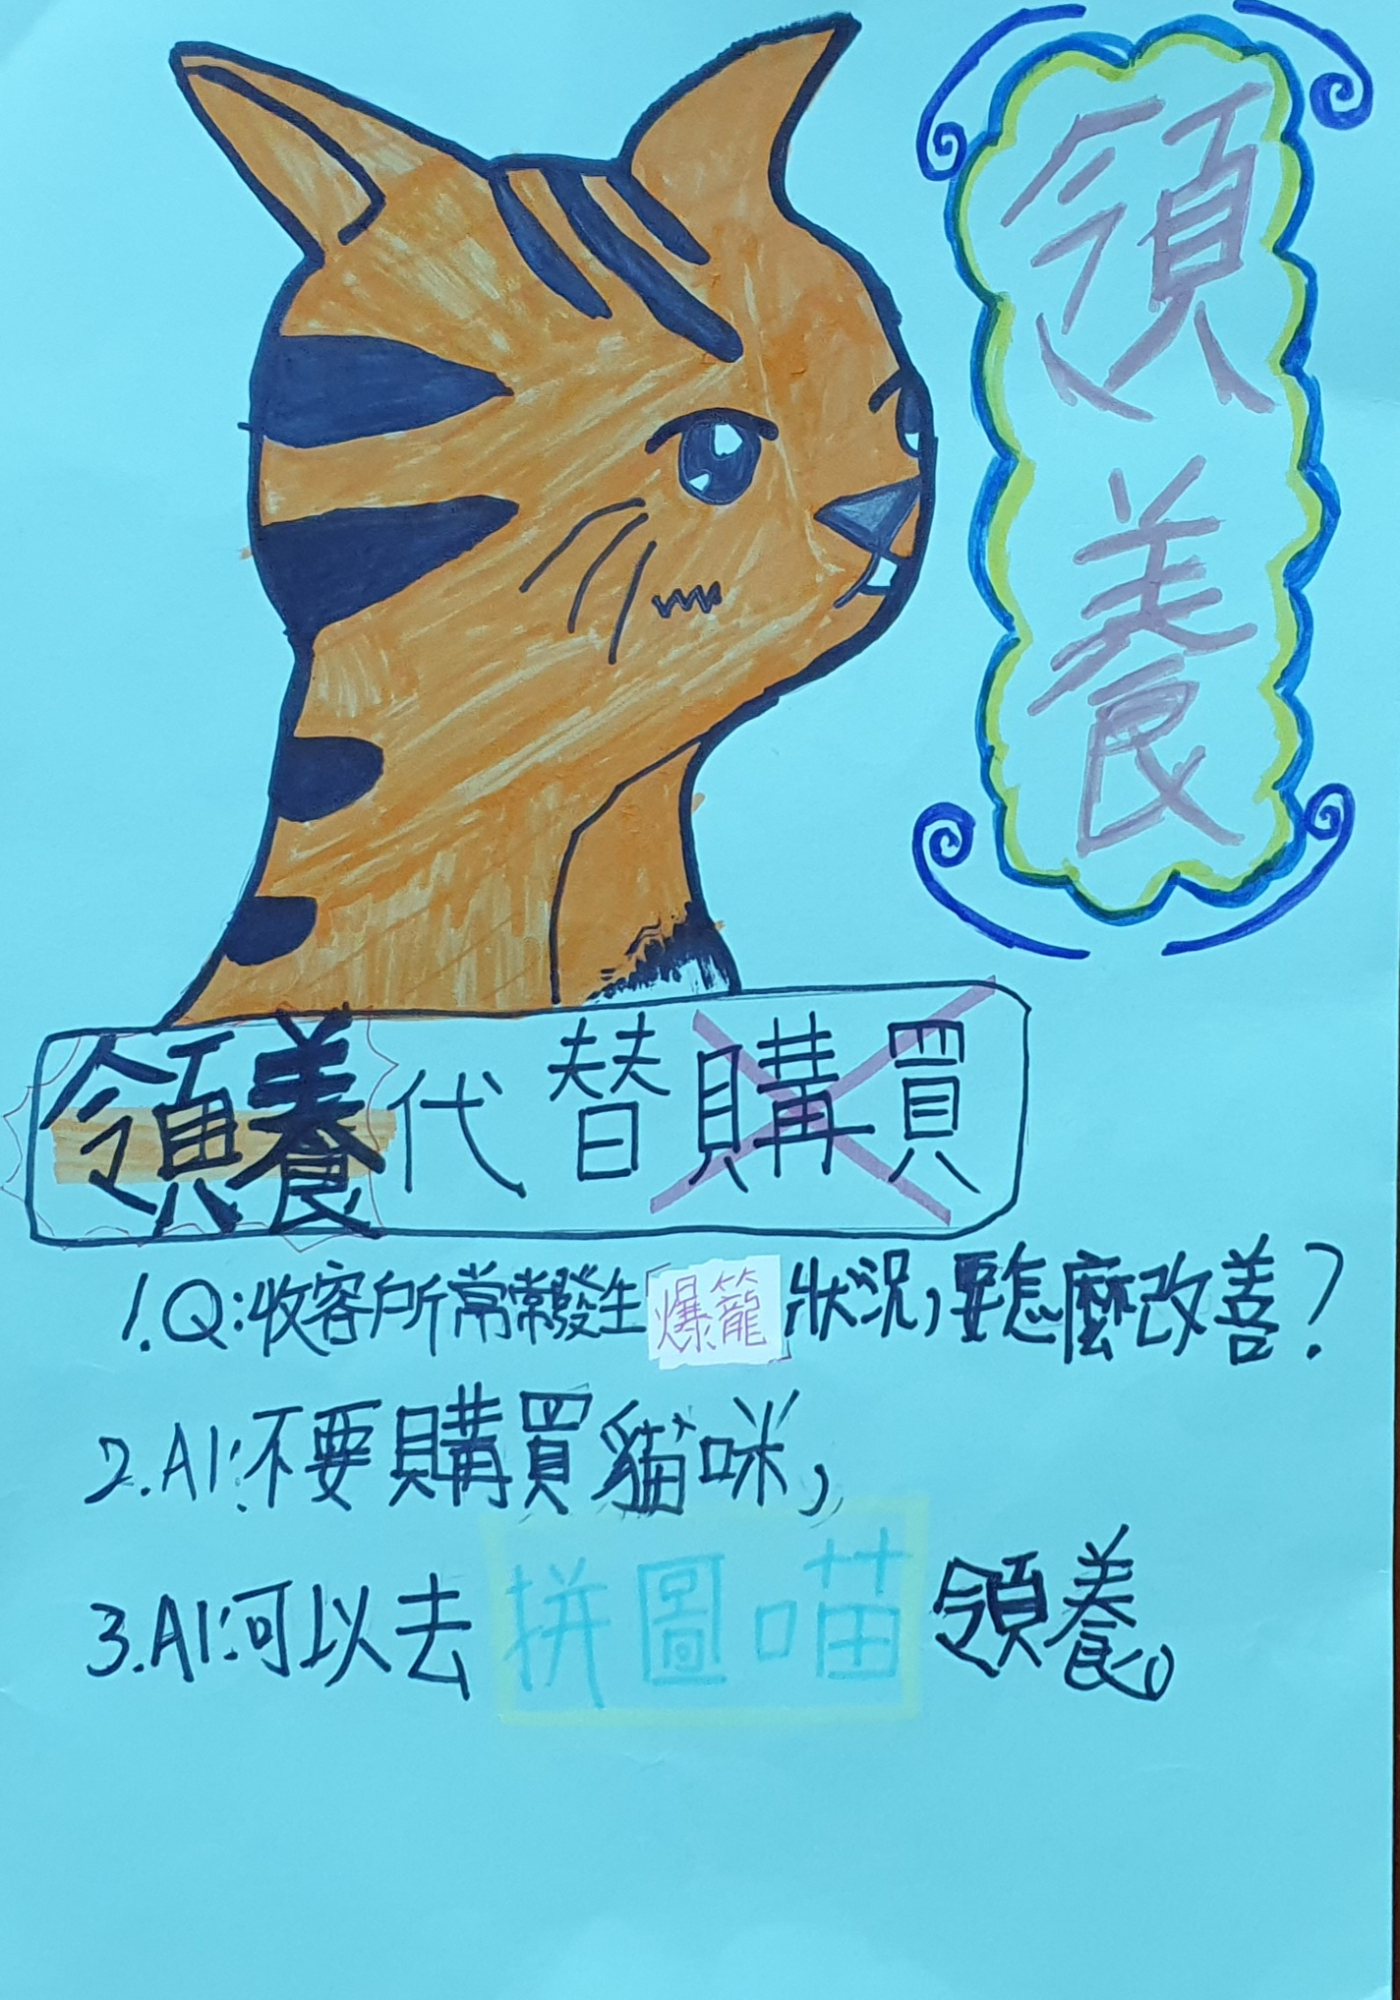 領養
領養代替購買
1.Q:收容所常常發生「爆籠」狀況，要怎麼改善？
2.A1:不要購買貓咪，
3.A1:可以去拼圖喵領養。